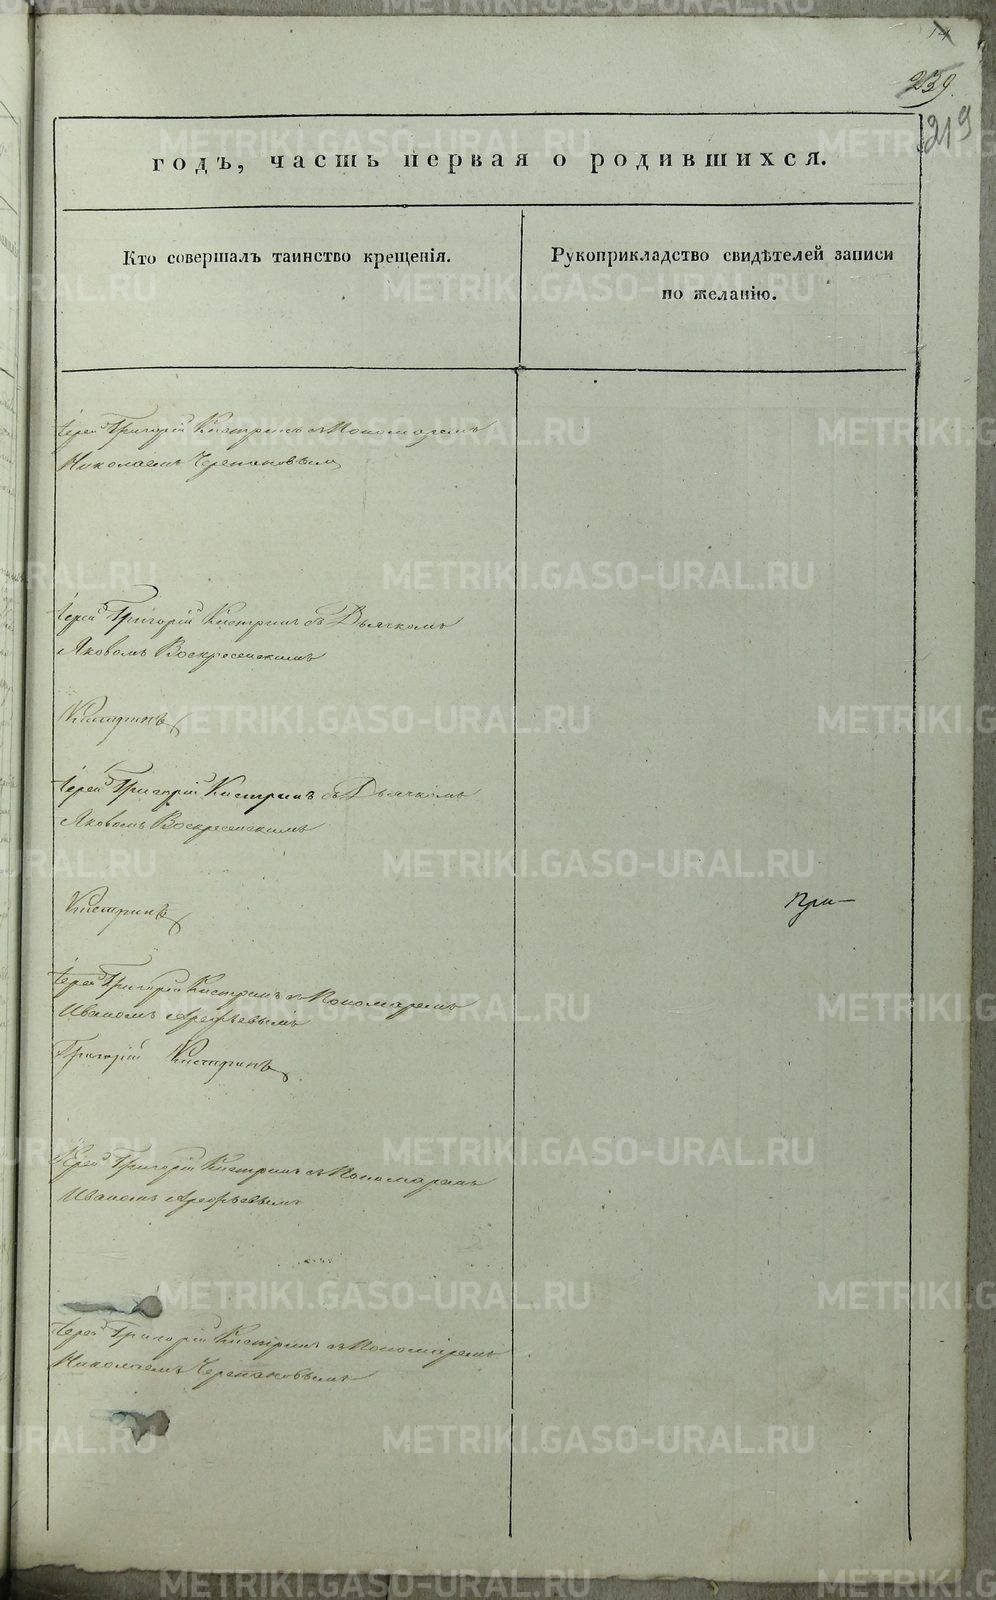 14
239.
219
годъ, часть первая о родившихся.
Кто совершалъ таинство крещенія.
Рукоприкладство свидѣтелей записи
по желанію.
Іерей Григорій Кистринъ съ Пономаремъ
Николаемъ Черепановымъ
Іерей Григорій Кистринъ съ Дьячкомъ
Яковомъ Воскресенскимъ
Кистринъ
Іерей Григорій Кистринъ съ Дьячкомъ
Яковомъ Воскресенскимъ
Кистринъ
При—
Іерей Григорій Кистринъ съ Пономаремъ
Иваномъ Арефьевымъ
Григорій Кистринъ
Іерей Григорій Кистринъ съ Пономаремъ
Иваномъ Арефьевымъ
Іерей Григорій Кистринъ съ Пономаремъ
Николаемъ Черепановымъ
METRIKI.GASO-URAL.RU